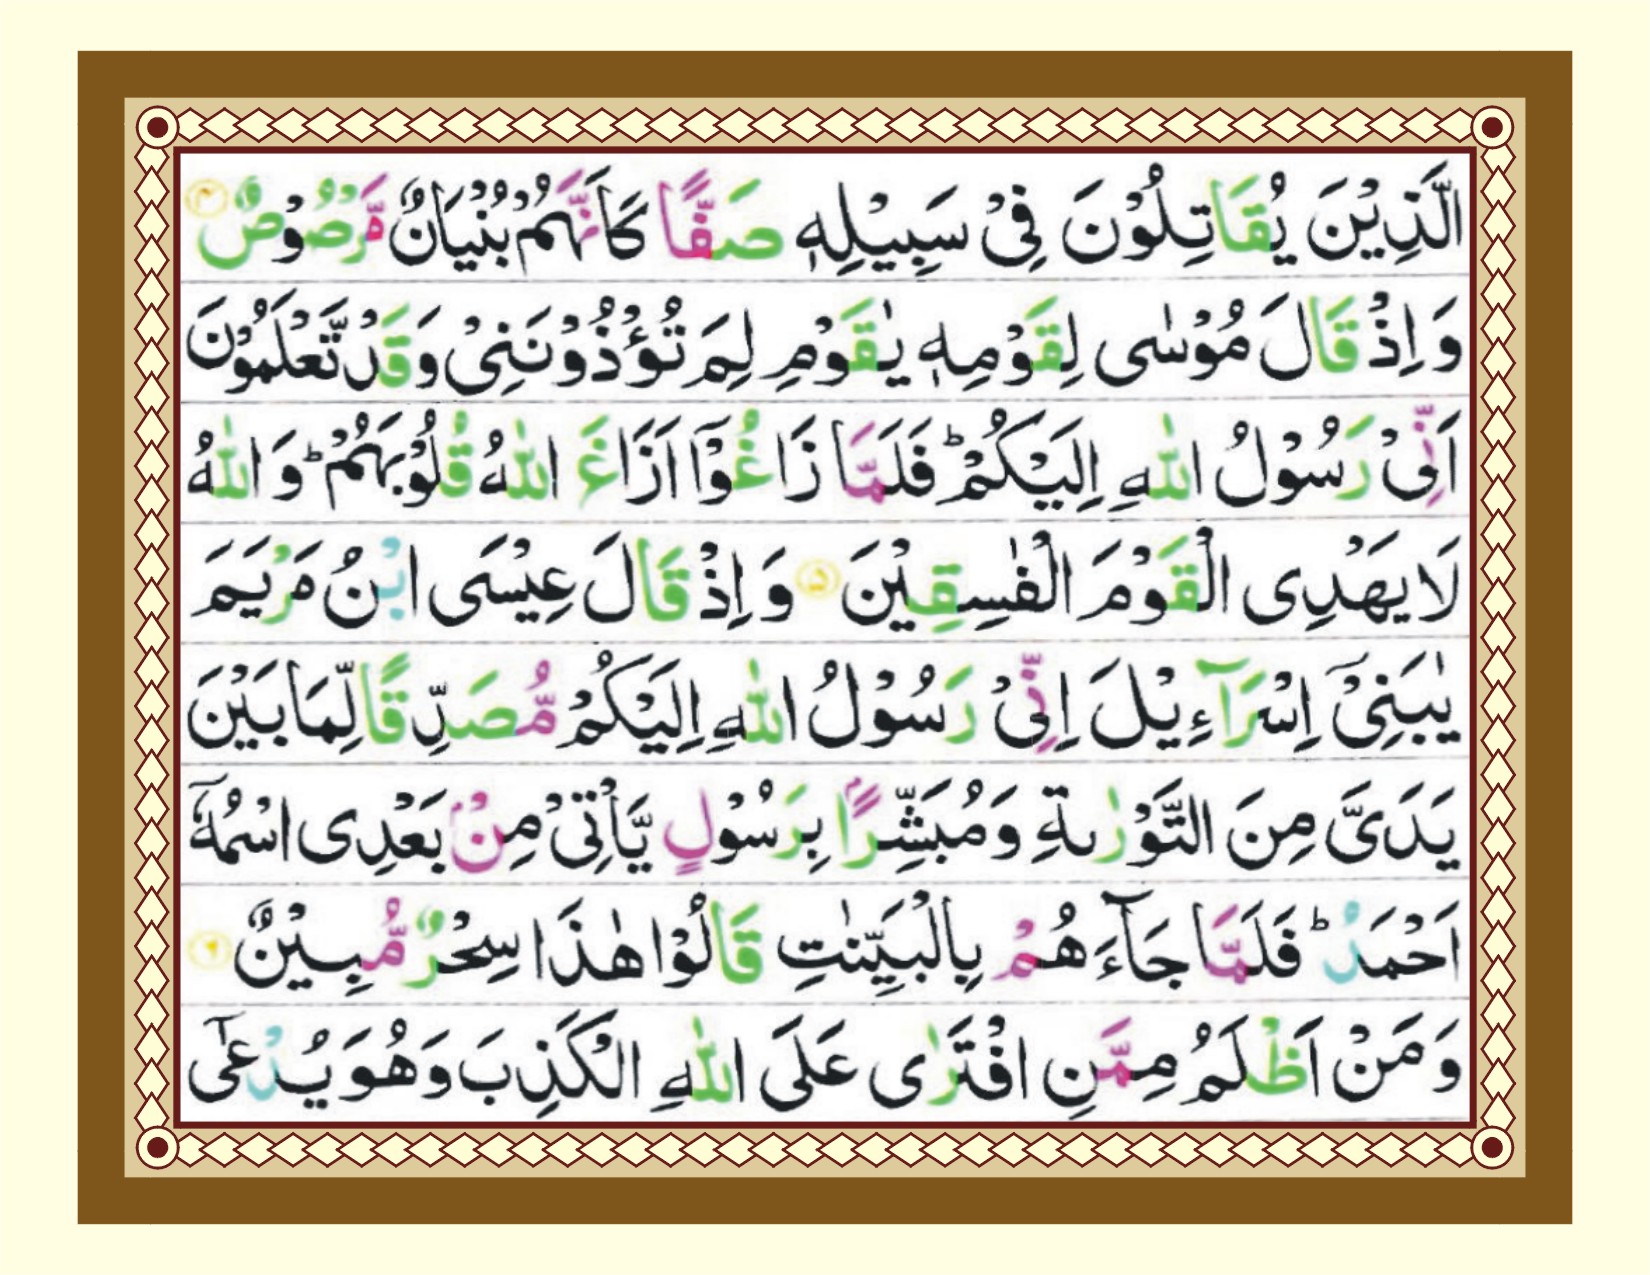 الَّذِيْنَ يُقَاتِلُوْنَ فِىْ سَبِيْلِهٖ صَفًّا كَاَنَّهُمْ بُنْيَانٌ مَّرْصُوْصٌ ۴
وَ اِذْ قَالَ مُوْسٰى لِقَوْمِهٖ يٰقَوْمِ لِمَ تُؤْذُوْنَنِىْ وَقَدْ تَّعْلَمُوْنَ
اَنِّىْ رَسُوْلُ اللّٰهِ اِلَيْكُمْ ؕ فَلَمَّا زَاغُوْۤا اَزَاغَ اللّٰهُ قُلُوْبَهُمْ ؕ وَ اللّٰهُ
لَا يَهْدِى الْقَوْمَ الْفٰسِقِيْنَ ۵ وَ اِذْ قَالَ عِيْسَى ابْنُ مَرْيَمَ
يٰبَنِىْۤ اِسْرَآءِيْلَ اِنِّىْ رَسُوْلُ اللّٰهِ اِلَيْكُمْ مُّصَدِّقًا لِّمَا بَيْنَ
يَدَىَّ مِنَ التَّوْرٰىةِ وَ مُبَشِّرًا بِرَسُوْلٍ يَّاْتِىْ مِنْۢ بَعْدِى اسْمُهٗۤ
اَحْمَدُ ؕ فَلَمَّا جَآءَهُمْ بِالْبَيِّنٰتِ قَالُوْا هٰذَا سِحْرٌ مُّبِيْنٌ ۶
وَ مَنْ اَظْلَمُ مِمَّنِ افْتَرٰى عَلَى اللّٰهِ الْكَذِبَ وَهُوَ يُدْعٰۤى